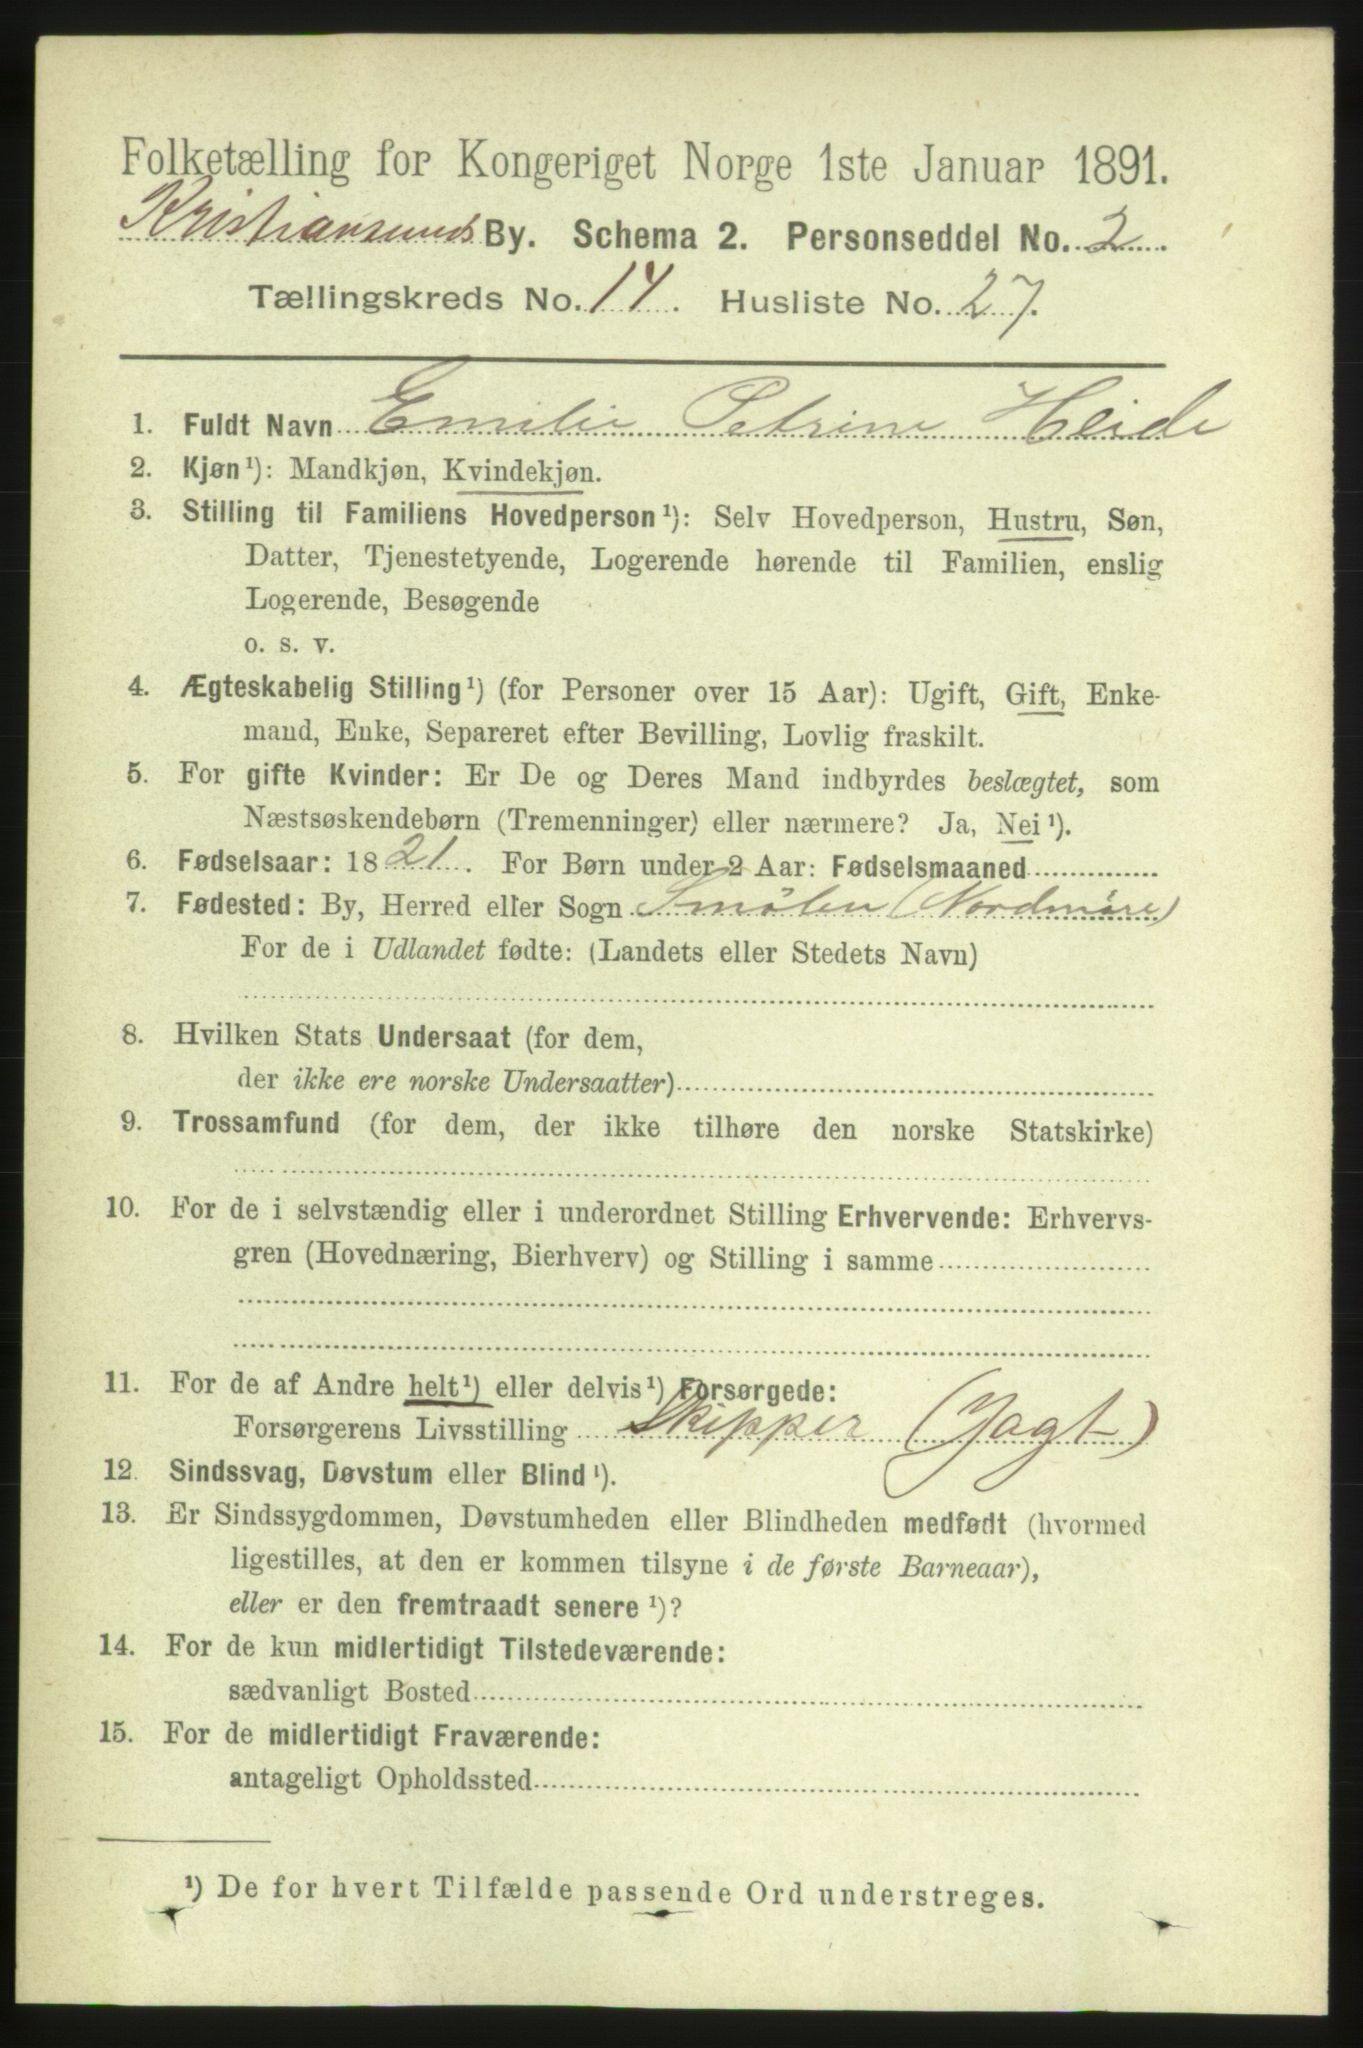 Folketælling for Kongeriget Norge 1ste Januar 1891.
Kristiansunds By. Schema 2. Personseddel No. 2.
Tællingskreds No. 14. Husliste No. 27.
1. Fuldt Navn Emilie Petrine Heide
2. Kjøn¹): Mandkjøn, Kvindekjøn.
3. Stilling til Familiens Hovedperson¹): Selv Hovedperson, Hustru, Søn,
Datter, Tjenestetyende, Logerende hørende til Familien, enslig
Logerende, Besøgende
o. s. v.
4. Ægteskabelig Stilling¹) (for Personer over 15 Aar): Ugift, Gift, Enke-
mand, Enke, Separeret efter Bevilling, Lovlig fraskilt.
5. For gifte Kvinder: Er De og Deres Mand indbyrdes beslægtet, som
Næstsøskendebørn (Tremenninger) eller nærmere? Ja, Nei¹).
6. Fødselsaar: 1821. For Børn under 2 Aar: Fødselsmaaned
7. Fødested: By, Herred eller Sogn Smølen (Nordmøre)
For de i Udlandet fødte: (Landets eller Stedets Navn)
8. Hvilken Stats Undersaat (for dem,
der ikke ere norske Undersaatter)
9. Trossamfund (for dem, der ikke tilhøre den norske Statskirke)
10. For de i selvstændig eller i underordnet Stilling Erhvervende: Erhvervs-
gren (Hovednæring, Bierhverv) og Stilling i samme
11. For de af Andre helt¹) eller delvis¹) Forsørgede:
Forsørgerens Livsstilling Skipper (Jagt)
12. Sindssvag, Døvstum eller Blind¹).
13. Er Sindssygdommen, Døvstumheden eller Blindheden medfødt (hvormed
ligestilles, at den er kommen tilsyne i de første Barneaar),
eller er den fremtraadt senere¹)?
14. For de kun midlertidigt Tilstedeværende:
sædvanligt Bosted
15. For de midlertidigt Fraværende:
antageligt Opholdssted
¹) De for hvert Tilfælde passende Ord understreges.